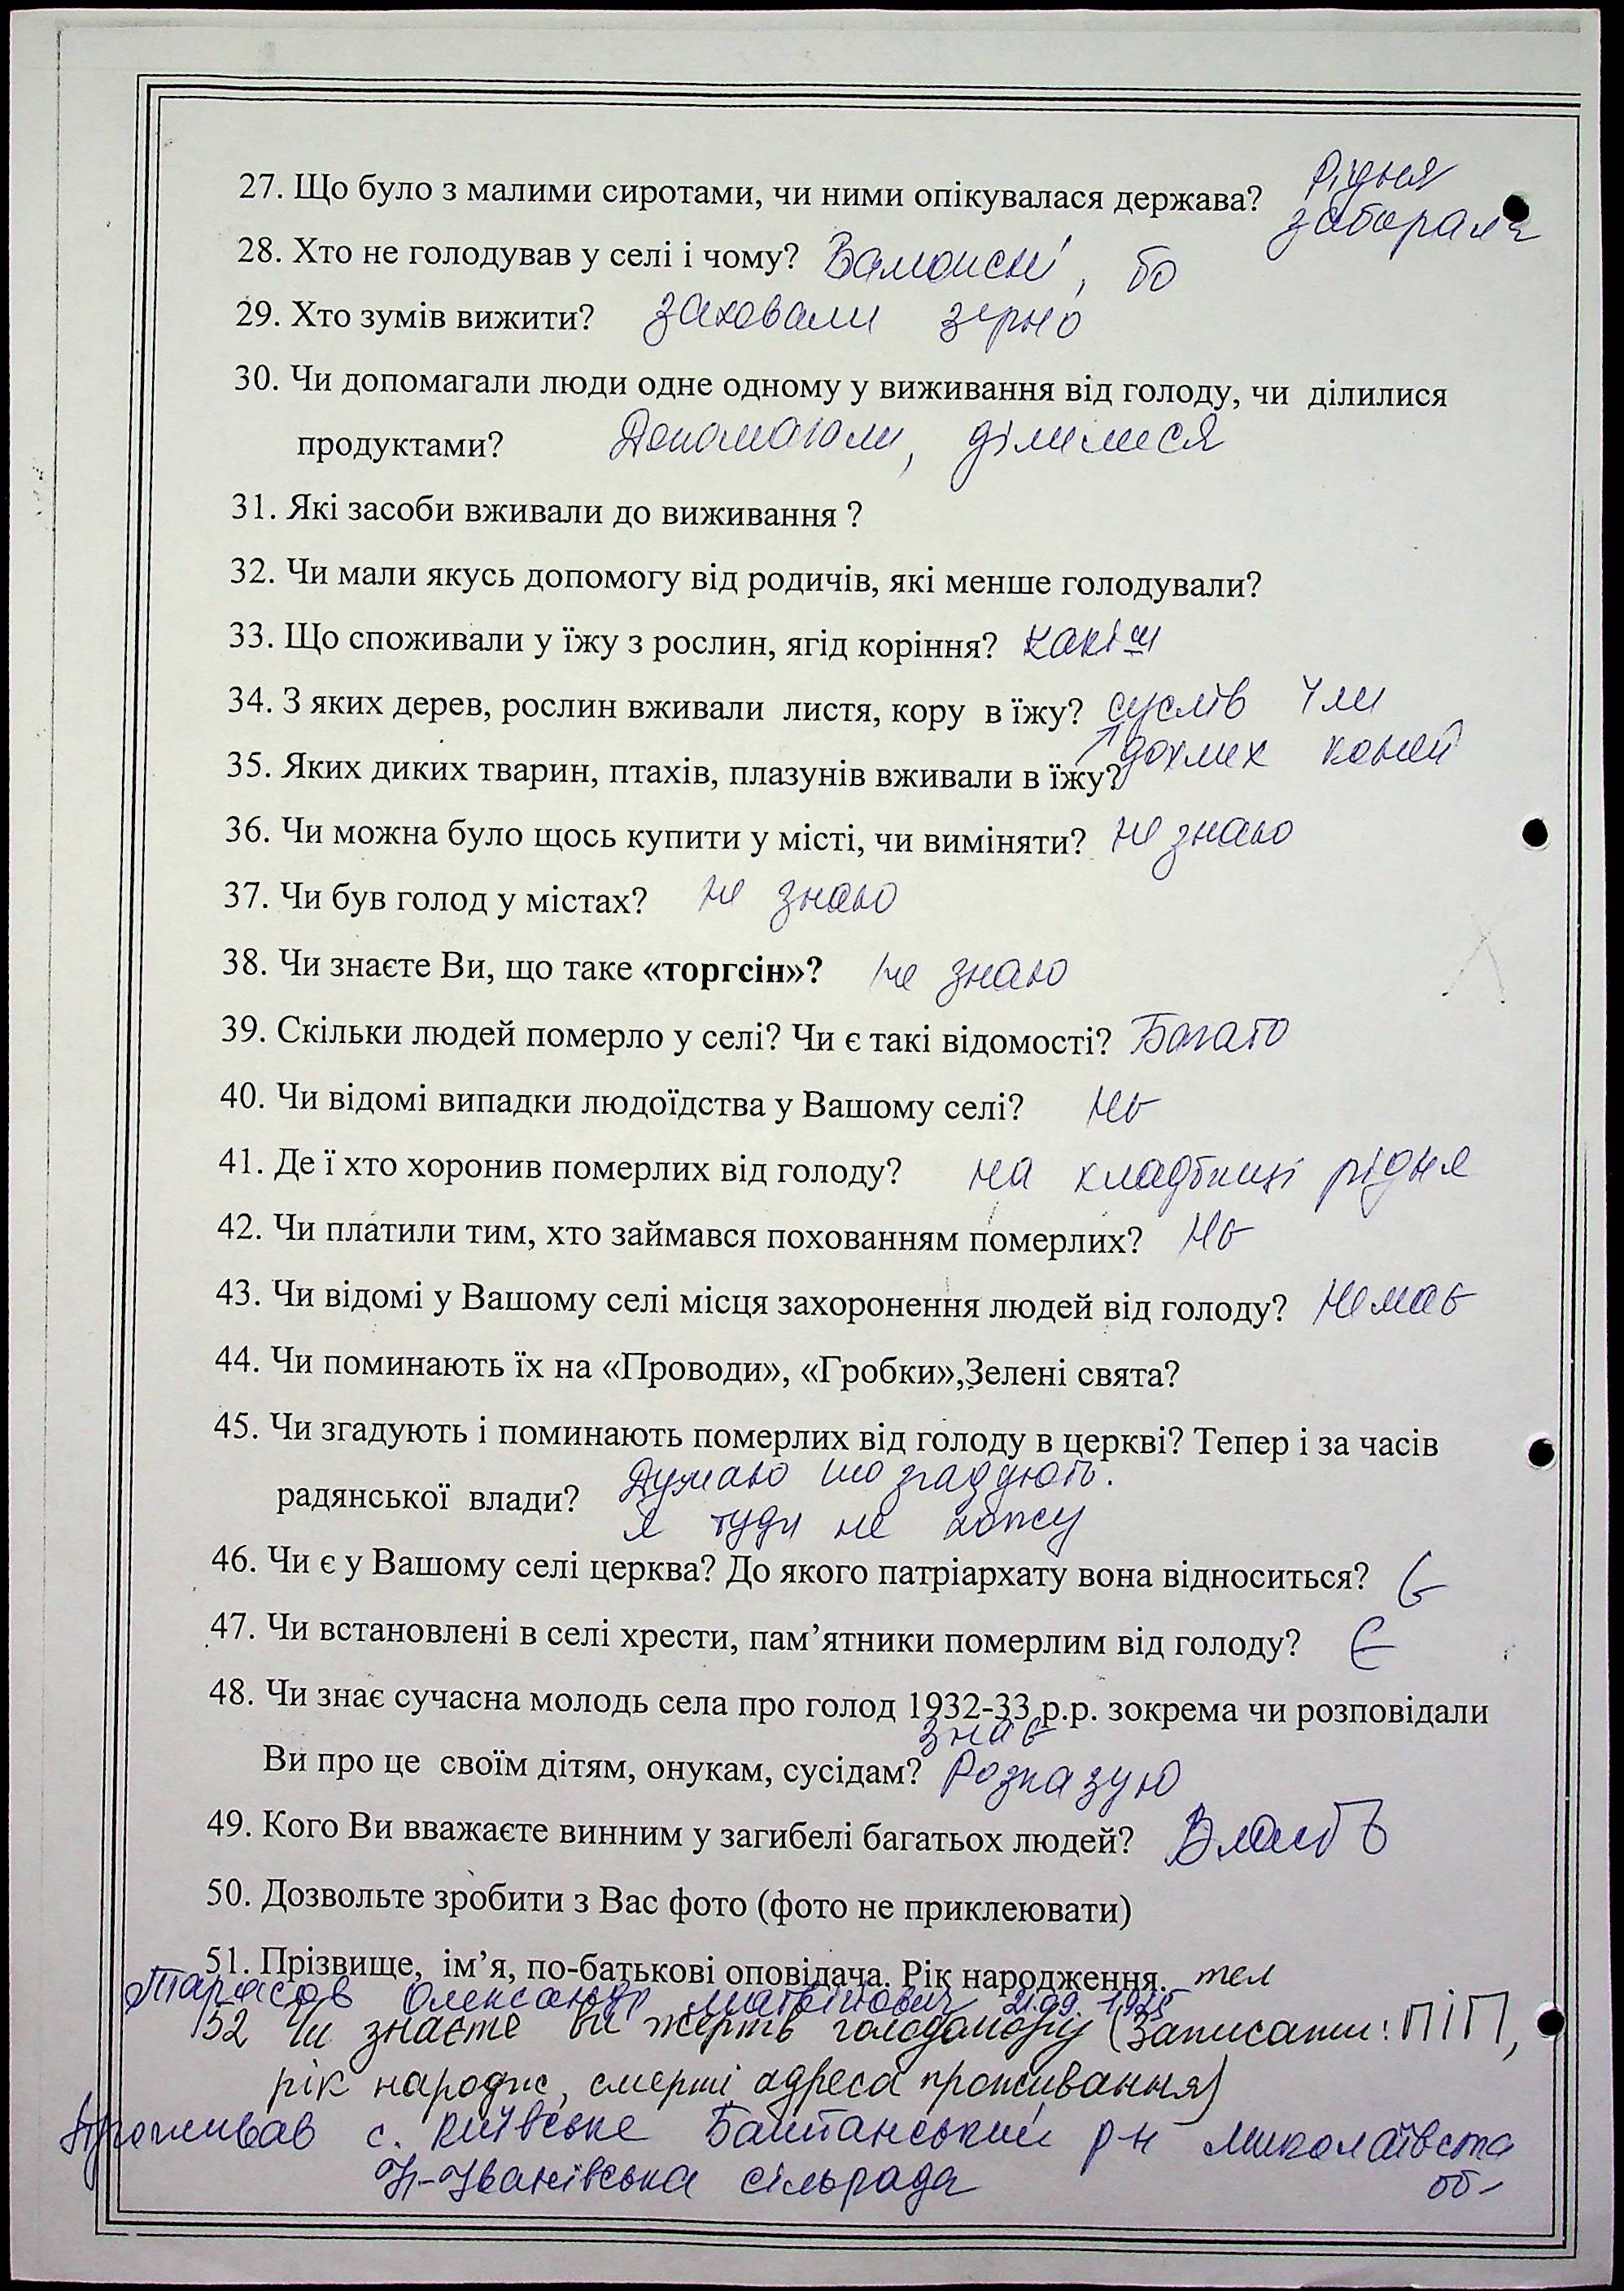 27. Що було з малими сиротами, чи ними опікувалася держава? Рідня
забирала
28. Хто не голодував у селі і чому? Заможні, бо
29. Хто зумів вижити? заховали зерно
30. Чи допомагали люди одне одному у виживання від голоду, чи ділилися
продуктами? Допомагали, ділилися
31. Які засоби вживали до виживання ?
32. Чи мали якусь допомогу від родичів, які менше голодували?
33. Що споживали у їжу з рослин, ягід коріння?
34. З яких дерев, рослин вживали листя, кору в їжу? суслів їли
дохлих коней
35. Яких диких тварин, птахів, плазунів вживали в їжу?
36. Чи можна було щось купити у місті, чи виміняти? не знаю
37. Чи був голод у містах? не знаю
38. Чи знаєте Ви, що таке «торгсін»? не знаю
39. Скільки людей померло у селі? Чи є такі відомості? Багато
40. Чи відомі випадки людоїдства у Вашому селі? Нє
41. Де ї хто хоронив померлих від голоду? на кладбищі рідня
42. Чи платили тим, хто займався похованням померлих? Нє
43. Чи відомі у Вашому селі місця захоронення людей від голоду? Немає
44. Чи поминають їх на «Проводи», «Гробки»,Зелені свята?
45. Чи згадують і поминають померлих від голоду в церкві? Тепер і за часів
радянської влади? Думаю шо згадують.
Я туди не хожу
46. Чи є у Вашому селі церква? До якого патріархату вона відноситься? Є
47. Чи встановлені в селі хрести, пам’ятники померлим від голоду? Є
48. Чи знає сучасна молодь села про голод 1932-33 р.р. зокрема чи розповідали
знає
Ви про це своїм дітям, онукам, сусідам? Розказую
49. Кого Ви вважаєте винним у загибелі багатьох людей? Власть
50. Дозвольте зробити з Вас фото (фото не приклеювати)
51. Прізвище, ім’я, по-батькові оповідача. Рік народження. тел
Тарасов Олександр Матвійович 21.09. 1925
52 Чи знаєте ви жертв голодомору (Записати: ПІП,
рік народж, смерті, адреса проживання)
Проживав с. Київське Баштанський р-н Миколаївська
Н-Іванівська сільрада об-